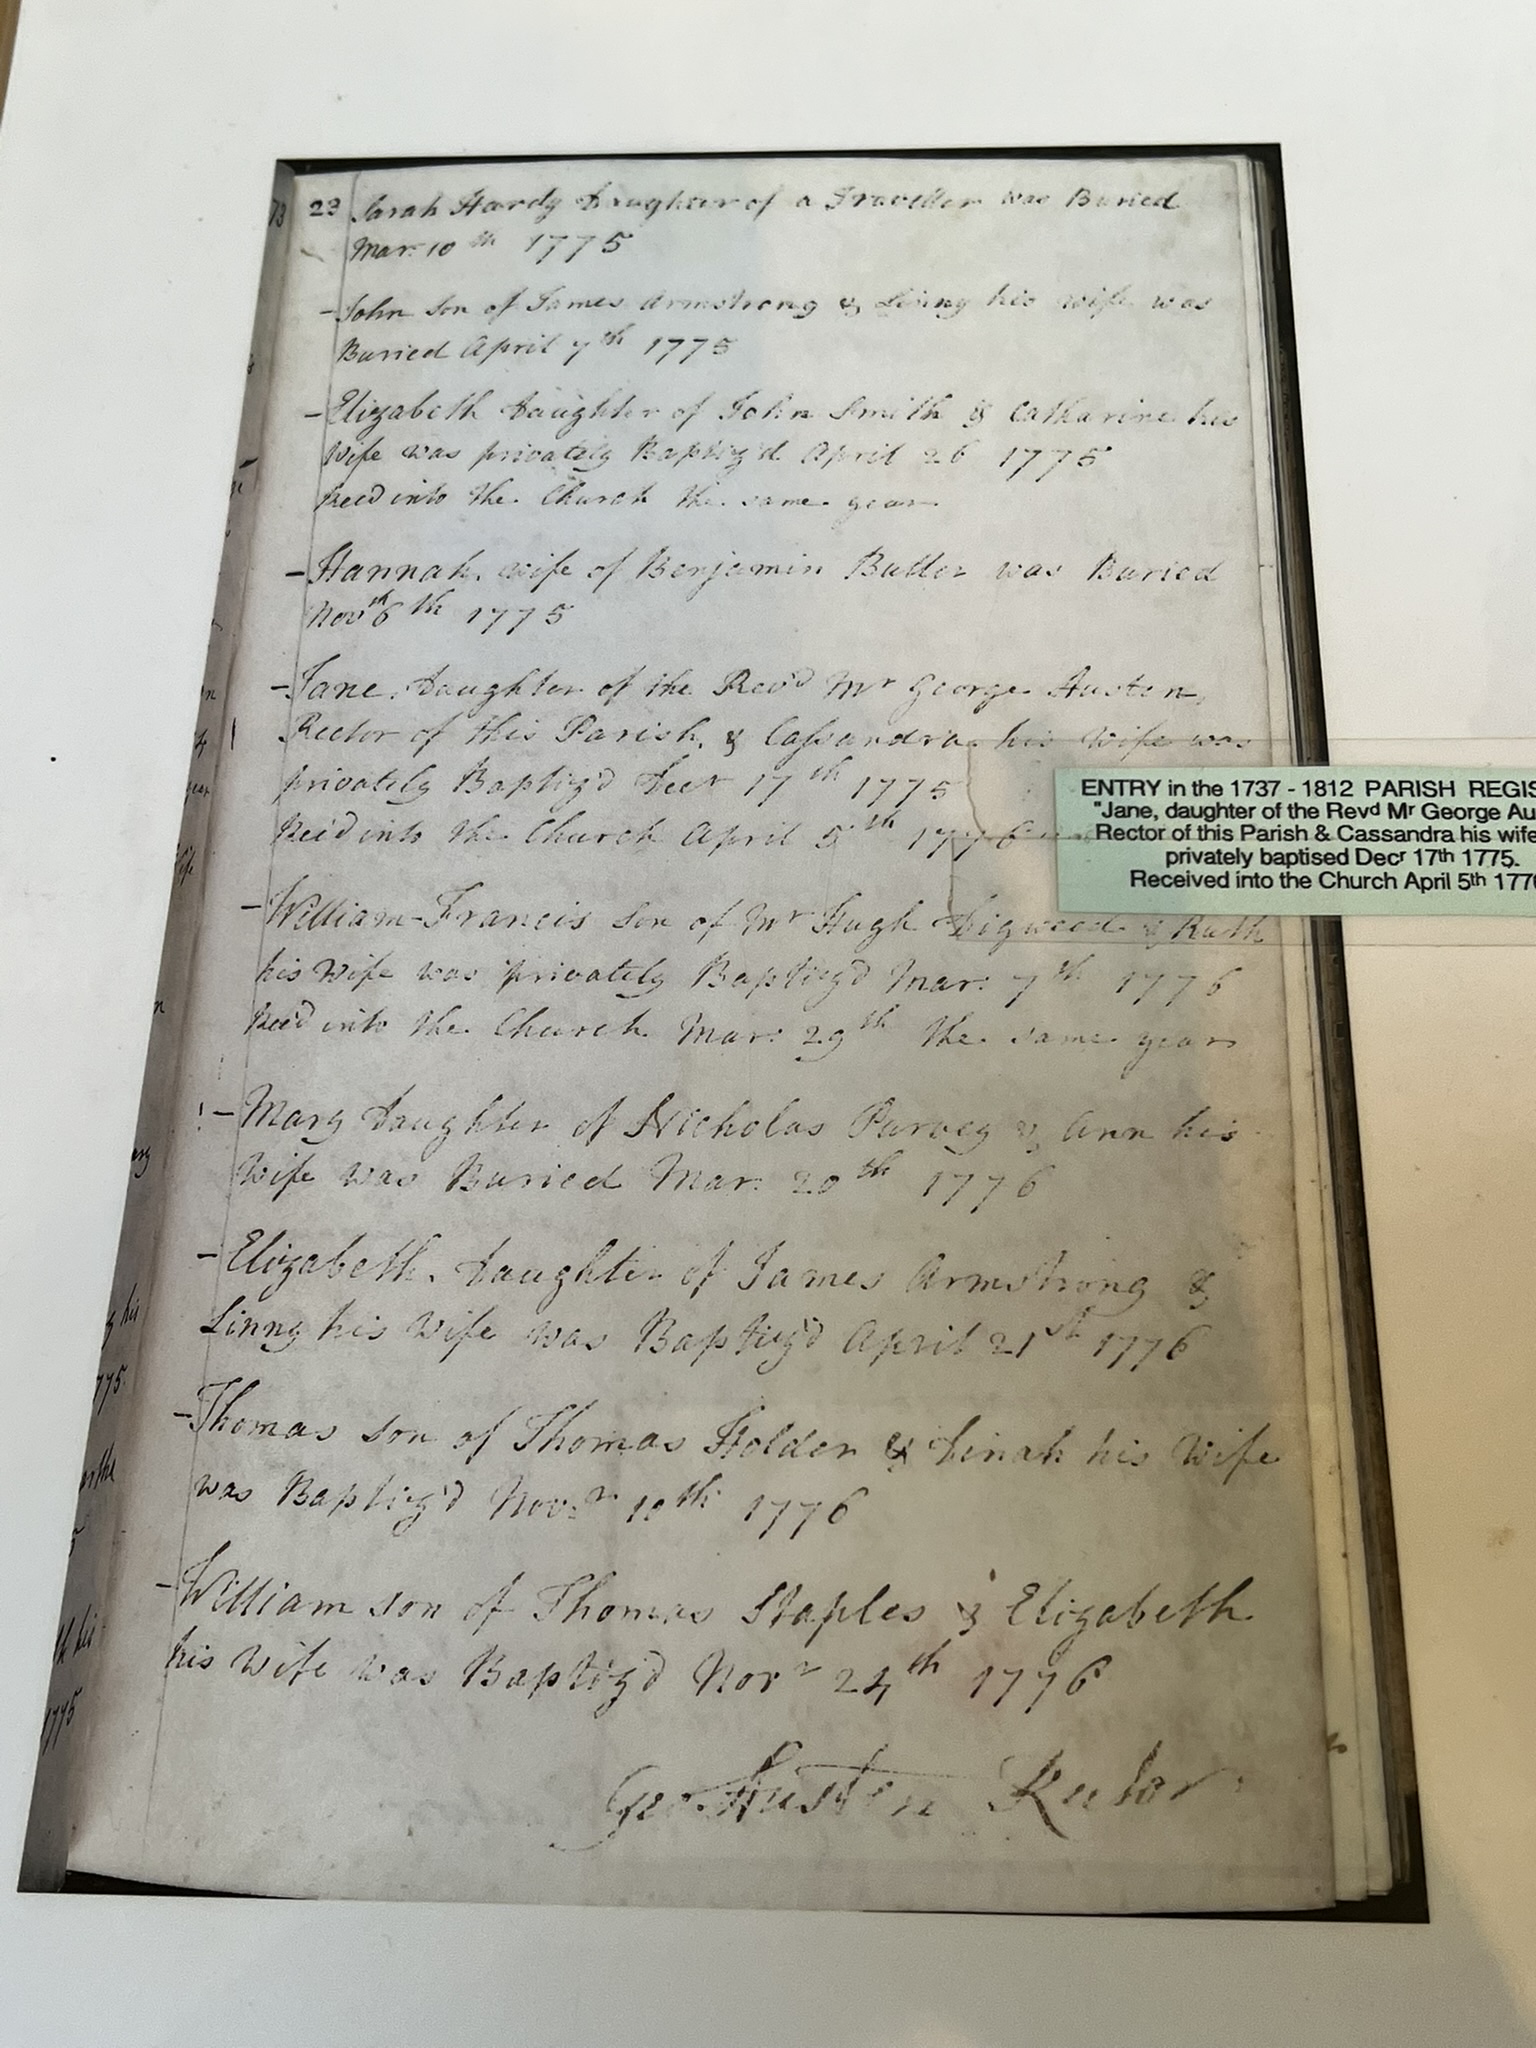 23 Sarah Hardy Daughter of a Traveller was Buried
Mar: 10th 1775
- John Son of James Armstrong & Linny his wife was
Buried April 7th 1775
- Elizabeth Daughter of John Smith & Catharine his
Wife was privately Baptiz'd April 26 1775
Rec'd into the Church the same year
- Hannah wife of Benjamin Butler was Buried
6th 1775
- Jane Daughter of the Rev'd Mr George Austen,
Rector of this Parish, & Cassandra his Wife was
privately Baptiz'd Decr 17th 1775
Rec'd into the Church April 5th 1776
- William-Francis Son of Mr Hugh Digweed & Ruth
his Wife was privately Baptiz'd Mar: 7th 1776
Rec'd into the Church Mar: 29th the same year
- Mary Daughter of Nicholas Purvey & Ann his
Wife was Buried Mar: 20th 1776
- Elizabeth Daughter of James Armstrong &
Linny his Wife was Baptiz'd April 21st 1776
- Thomas son of Thomas Holder & Dinah his Wife
was Baptiz'd Novr 10th 1776
- William son of Thomas Staples & Elizabeth
his Wife was Baptiz'd Novr 24th 1776
Geo: Austen Rector
ENTRY in the 1737 - 1812 PARISH REGIS
"Jane, daughter of the Revd Mr George Au
Rector of this Parish & Cassandra his wife
privately baptised Decr 17th 1775.
Received into the Church April 5th 177